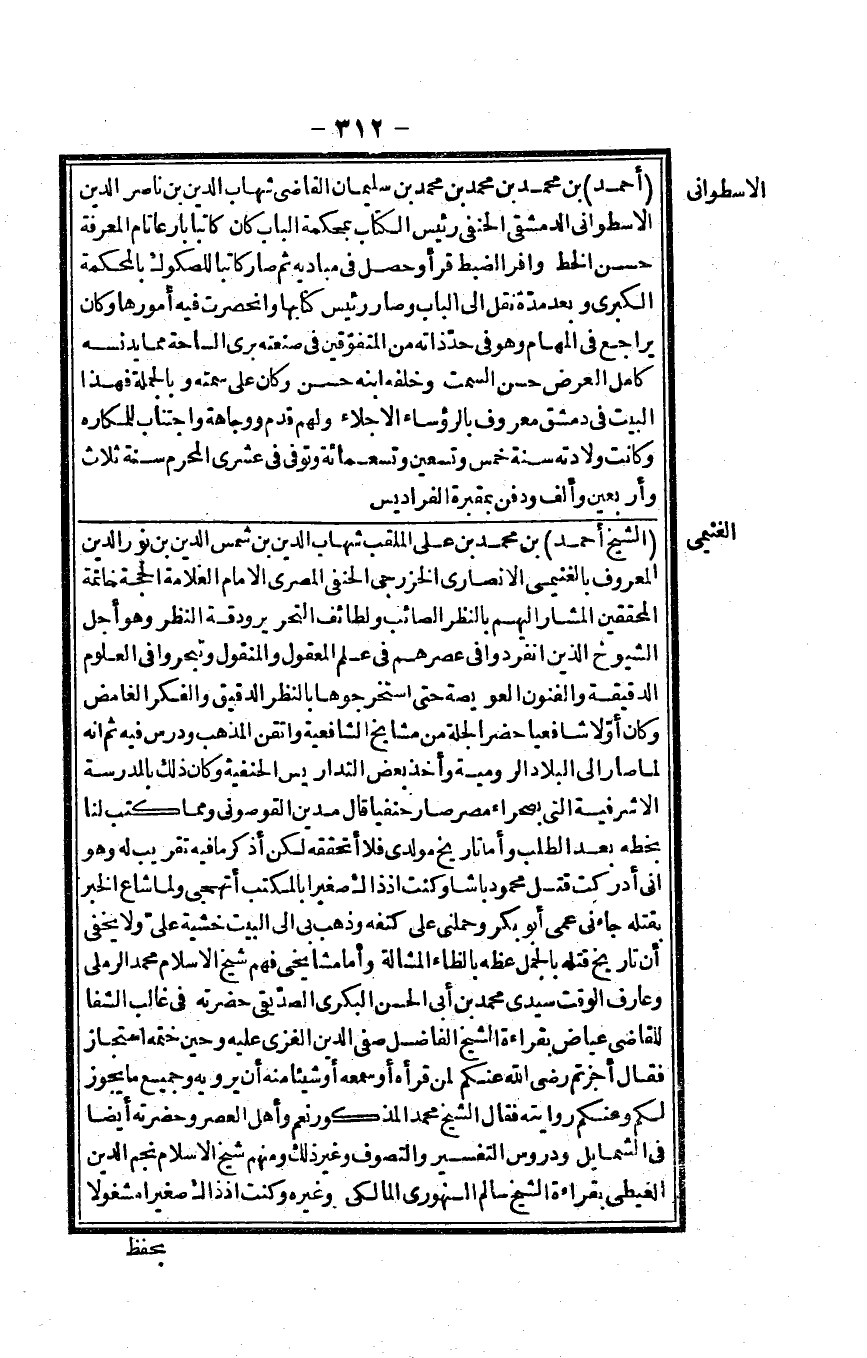 - ٣١٢ -
الاسطوانى
(أحمد) بن محمد بن محمد بن محمد بن سليمان القاضى شهاب الدين بن ناصر الدين
الاسطوانى الدمشقى الحنفى رئيس الكتاب بمحكمة الباب كان كاتبا بارعا تام المعرفة
حسن الخط وافر الضبط قرأ وحصل فى مباديه ثم صار كاتبا للصكوك بالمحكمة
الكبرى وبعد مدة نقل الى الباب وصار رئيس كتابها وانحصرت فيه أمورها وكان
يراجع فى المهام وهو فى حد ذاته من المتفوقين فى صنعته برى الساحة مما يدنسه
كامل العرض حسن السمت وخلفه ابنه حسن وكان على سمته وبالجملة فهذا
البيت فى دمشق معروف بالرؤساء الاجلاء ولهم قدم ووجاهة واجتناب للمكاره
وكانت ولادته سنة خمس وتسعين وتسعمائة وتوفى فى عشرى المحرم سنة ثلاث
وأربعين وألف ودفن بمقبرة الفراديس
الغنيمى
(الشيخ أحمد) بن محمد بن على الملقب شهاب الدين بن شمس الدين بن نور الدين
المعروف بالغنيمى الانصارى الخزرجى الحنفى المصرى الامام العلامة الحجة خاتمة
المحققين المشار اليهم بالنظر الصائب ولطائف التحرير ودقة النظر وهو أجل
الشيوخ الذين انفردوا فى عصرهم فى علم المعقول والمنقول وتبحروا فى العلوم
الدقيقة والفنون العويصة حتى استخرجوها بالنظر الدقيق والفكر الغامض
وكان أولا شافعيا حضر الجلة من مشايخ الشافعية واتقن المذهب ودرس فيه ثم انه
لما صار الى البلاد الرومية وأخذ بعض التداريس الحنفية وكان ذلك بالمدرسة
الاشرفية التى بصحراء مصر صار حنفيا قال مدين القوصونى ومما كتب لنا
بخطه بعد الطلب وأما تاريخ مولدى فلا أتحققه لكن أذكر ما فيه تقريب له وهو
انى أدركت قتل محمود باشا وكنت اذ ذاك صغيرا بالمكتب أتهجى ولما شاع الخبر
بقتله جاءنى عمى أبو بكر وحملنى على كتفه وذهب بى الى البيت خشية علىّ ولا يخفى
أن تاريخ قتله بالجمل عظه بالظاء المشالة وأما مشايخى فهم شيخ الاسلام محمد الرملى
وعارف الوقت سيدى محمد بن أبى الحسن البكرى الصديقى حضرته فى غالب الشفا
للقاضى عياض بقراءة الشيخ الفاضل صفى الدين الغزى عليه وحين ختمه استجاز
فقال أجزتم رضى الله عنكم لمن قرأه أو سمعه أو شيئا منه أن يرويه وجميع ما يجوز
لكم وعنكم روايته فقال الشيخ محمد المذكور نعم وأهل العصر وحضرته أيضا
فى الشمايل ودروس التفسير والتصوف وغير ذلك ومنهم شيخ الاسلام نجم الدين
الغيطى بقراءة الشيخ سالم السنهورى المالكى وغيره وكنت اذ ذاك صغيرا مشغولا
بحفظ